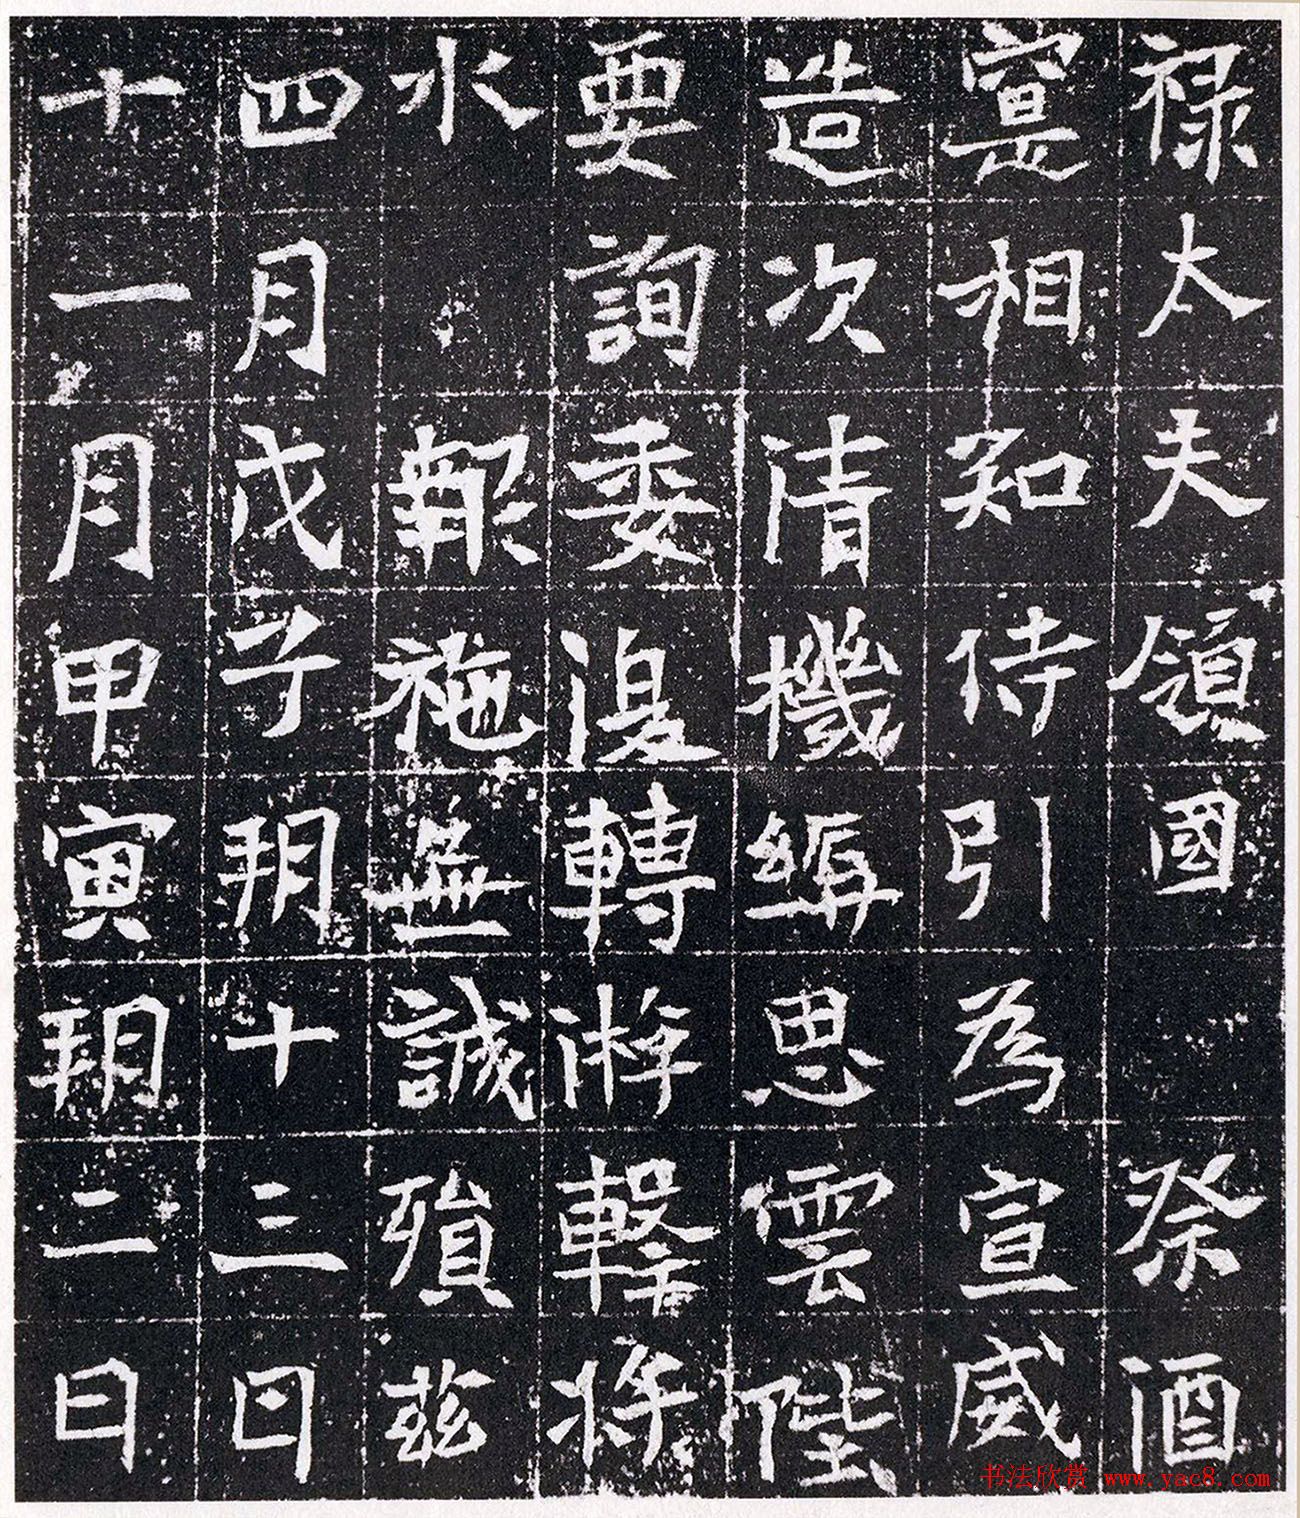 禄太夫領國 祭酒
寔相知侍引為宣威
造次清機緝思雲陛
要詢委復轉游擊將
水 報施無誠殞茲
四月戊子朔十三日
十一月甲寅朔二日
书法欣赏 www.yac8.com